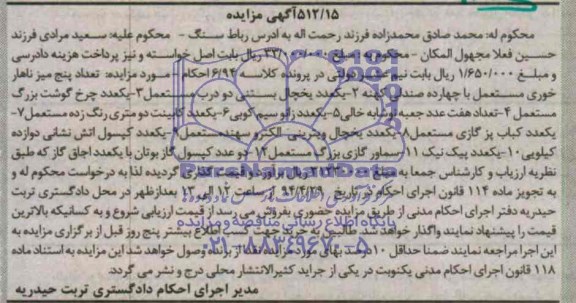 ۵۱۲/۱۵آگهی مزایده
محکوم له: محمد صادق محمدزاده فرزند رحمت اله به ادرس رباط سنگ - محکوم علیه: سعید مرادی فرزند
حسین فعلا مجهول المکان - محکوم به مبلغ ریال بابت اصل خواسته و نیز پرداخت هزینه دادرسی
و مبلغ ۱/۶۵۰/۰۰۰ ریال بابت نیم عشر دولتی در پرونده کلاسه ۶/۹۴ احکام - مورد مزایده: تعداد پنج میز ناهار
خوری مستعمل با چهارده صندلی کهنه ۲-یکعدد یخچال بستنی دو درب مستعمل ۳-یکعدد چرخ گوشت بزرگ
مستعمل ۴-تعداد هفت عدد جعبه نوشابه خالی ۵-یکعدد زانو سیم کوبی ۶-یکعدد کابینت دو متری رنگ زده مستعمل ۷-
یکعدد کباب پز گازی مستعمل ۸-یکعدد یخچال ویترینی الکترو سهند مستعمل ۹-یکعدد کپسول اتش نشانی دوازده
کیلویی ۱۰-یکعدد پیک نیک ۱۱-سماور گازی بزرگ مستعمل ۱۲-دو عدد کپسول گاز بوتان با یکعدد اجاق گاز که طبق
نظریه ارزیاب و کارشناس جمعا به مبلغ ریال براورد و قیمت گذاری گردیده لذا به درخواست محکوم له و
به تجویز ماده ۱۱۴ قانون اجرای احکام در تاریخ ۹۴/۴/۲۹ از ساعت ۱۲ الی ۱۳ بعدازظهر در محل دادگستری تربت
حیدریه دفتر اجرای احکام مدنی از طریق مزایده حضوری بفروش می رسد از قیمت ارزیابی شروع و به کسانیکه بالاترین
قیمت را پیشنهاد نمایند واگذار خواهد شد طالبین به خرید جهت کسب اطلاع بیشتر پنج روز قبل از برگزاری مزایده به
این اجرا مراجعه نمایند ضمنا حداقل ۱۰درصد بهای مورد مزایده نقدا از برنده وصول خواهد شد این مزایده به استناد ماده
۱۱۸ قانون اجرای احکام مدنی یکنوبت در یکی از جراید کثیرالانتشار محلی درج و نشر می گردد.
مدیر اجرای احکام دادگستری تربت حیدریه
ParsNamadData
پایگاه اطلاع رسانی مناقصه و مزایده
۰۲۱-۸۸۳۴۹۶۷۰-۵